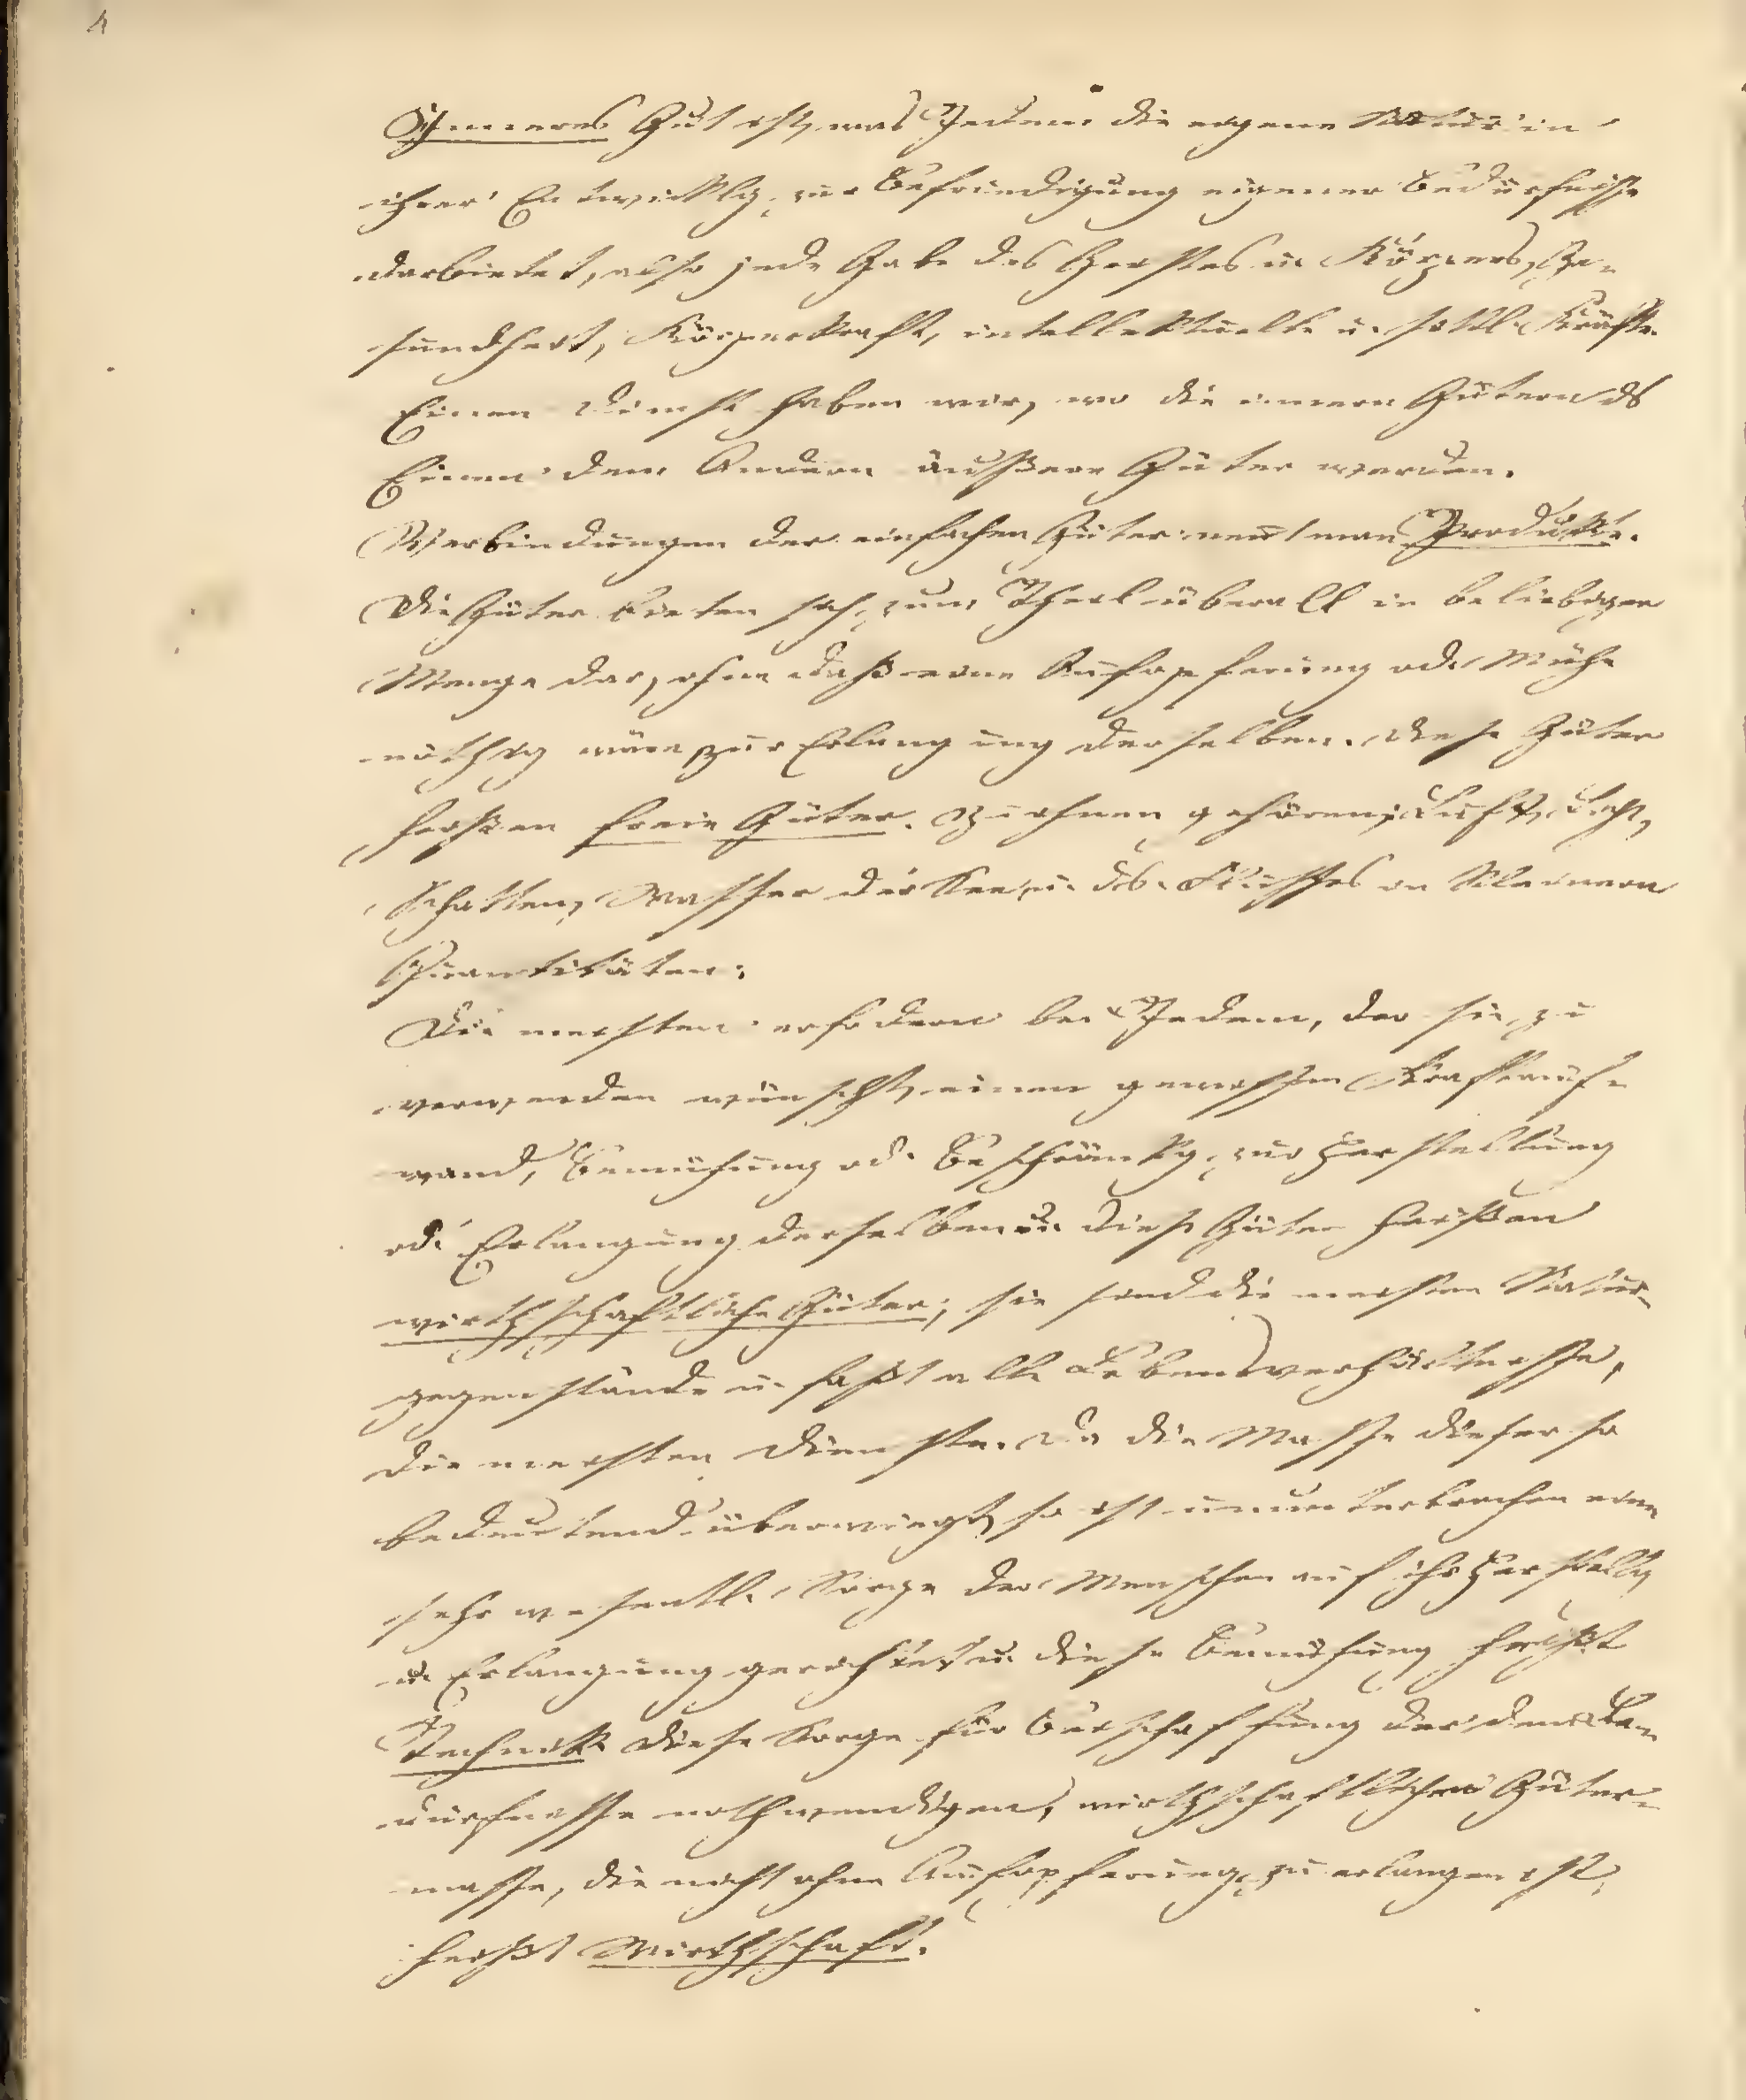 4
Inneres Gut ist, was Jedem die eigene Natur in
ihrer Entwicklg. zur Befriedigung eigener Bedürfnisse
darbietet, also jede Gabe des Geistes u. Körpers, Ge-
sundheit, Körperkraft, intellektuelle u. sittl. Kräfte.
Einen Dienst haben wir, wo die innern Gütern ds
Einen dem Andern äußere Güter werden.
Verbindungen der einfachen Güter nent man Produkte.
Die Güter bieten sich zum Theil überall in beliebiger
Menge dar, ohne daß eine Aufopferung od. Mühe
nöthig wäre zur Erlangung derselben. Diese Güter
heißen freie Güter. Zu ihnen gehören: Luft, Licht,
Schatten, Wasser der See u. ds. Flusses in kleinern
Quantitäten.
Die meisten erfodern bei Jedem, der sie zu
verwenden wünscht, einen gewissen Kraftauf-
wand, Bemühung od. Beschränkg. zur Herstellung
od. Erlangung derselben u. diese Güter heißen
wirthschaftliche Güter; sie sind die meisten Natur-
gegenstände u. faßt alle Lebensverhältnisse,
die meisten Dienste. Da die Masse dieser so
bedeutend überwiegt, so ist ununterbrochen eine
sehr wesentl. Sorge der Menschen auf ihre Herstellg
u. Erlangung gerichtet u. diese Bemühung heißt
Technik. Diese Sorge für Beischaffung der den Be-
dürfnisse nothwendigen, wirthschaftlichen Güter-
masse, die nicht ohne Aufopferung zu erlangen ist,
heißt Wirthschaft.